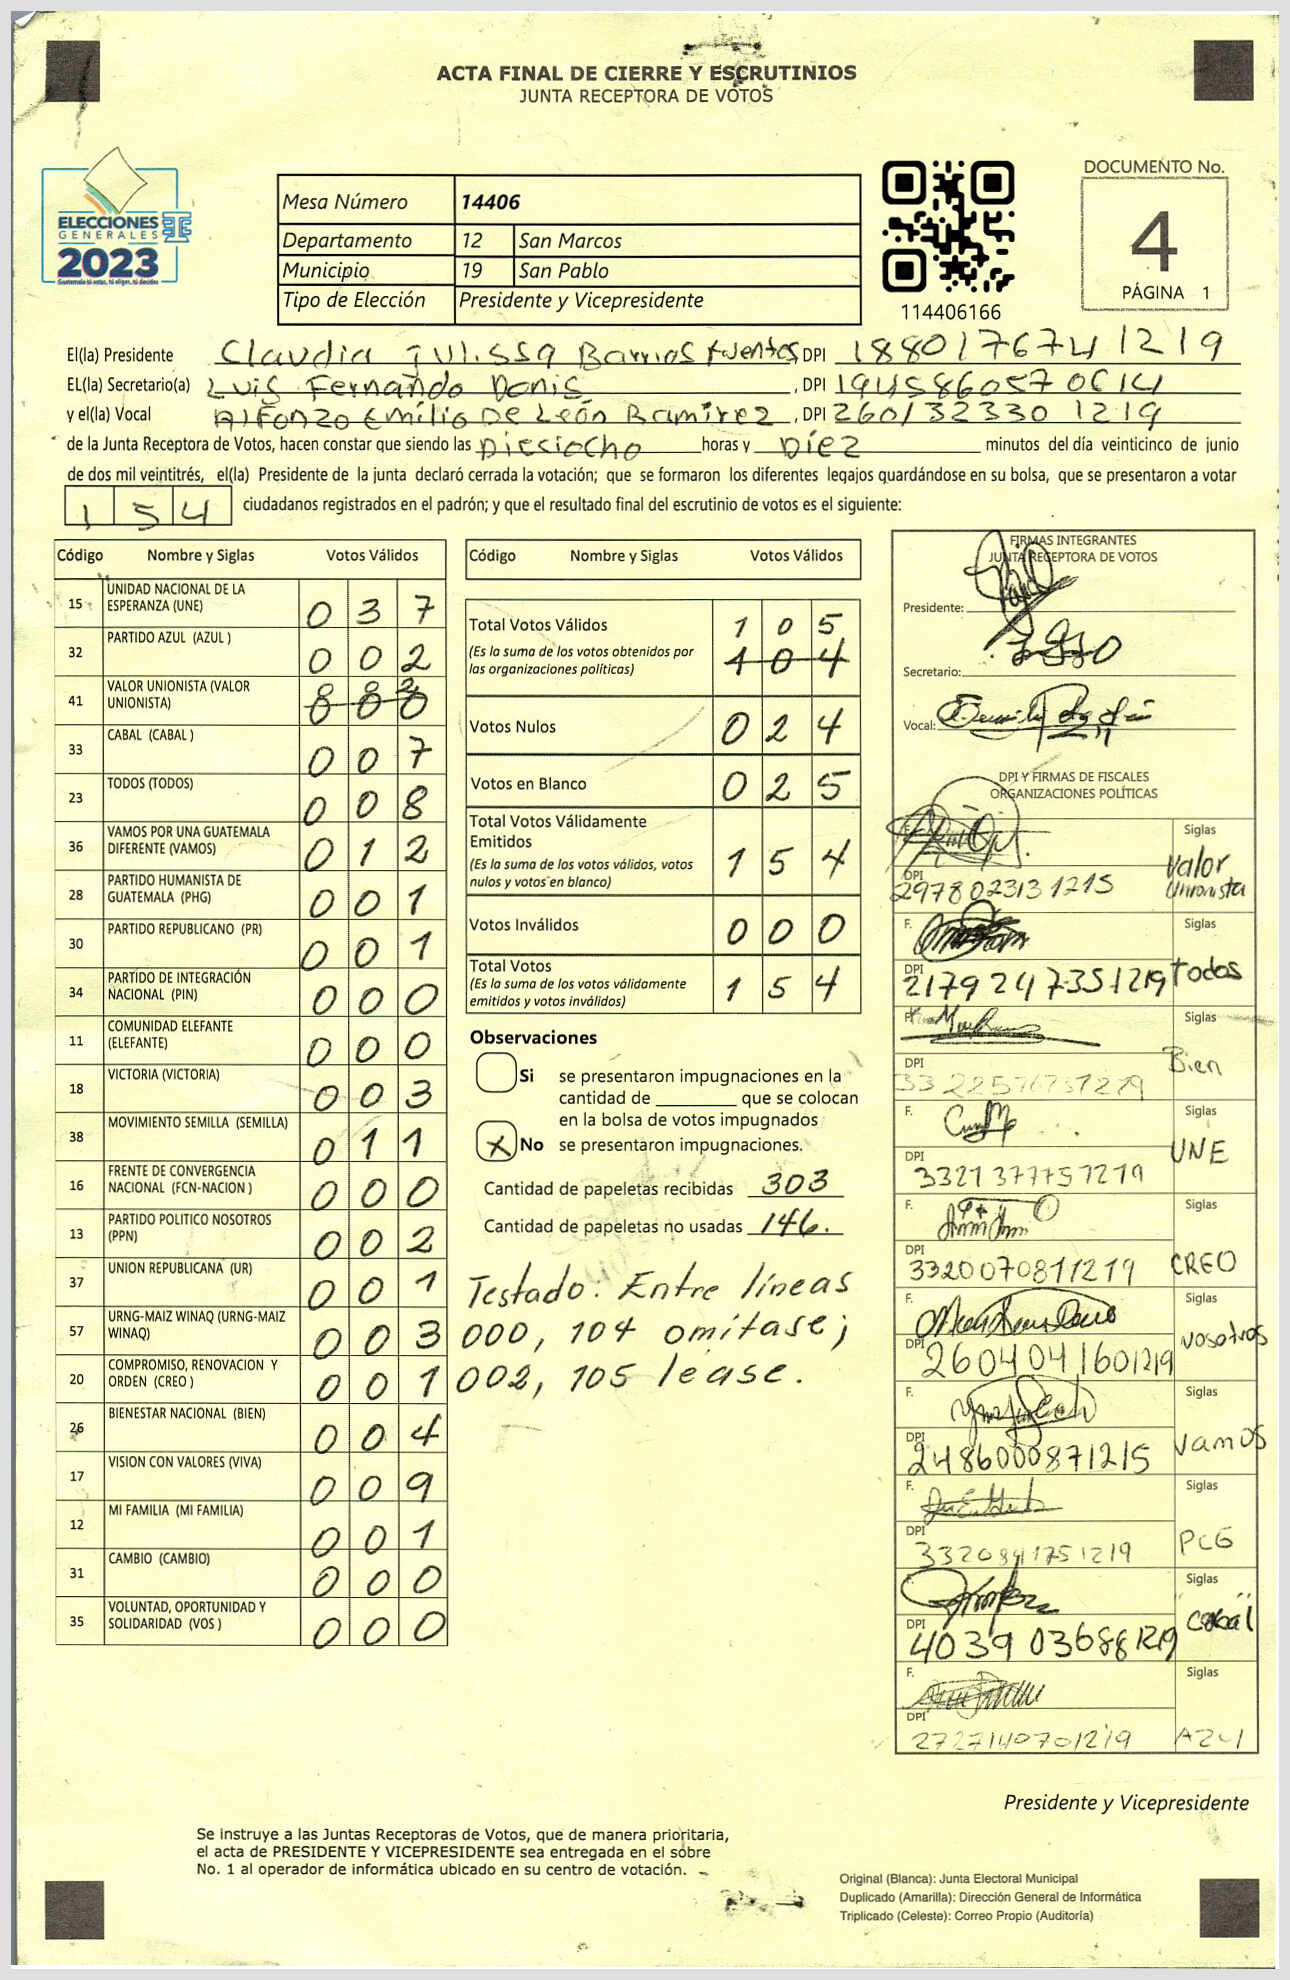 ACTA FINAL DE CIERRE Y ESCRUTINIOS
JUNTA RECEPTORA DE VOTOS
ELECCIONES
GENERALES
2023
Guatemala tú votas, tú eliges, tú decides
Mesa Número 14406
Departamento 12 San Marcos
Municipio 19 San Pablo
Tipo de Elección Presidente y Vicepresidente
114406166
DOCUMENTO No.
4
PÁGINA 1
El(la) Presidente Claudia Julissa Barrios Fuentes, DPI 1880176741219
EL(la) Secretario(a) Luis Fernando Donis, DPI 1945860570614
y el(la) Vocal Alfonzo Emilio De León Ramirez, DPI 2601323301219
de la Junta Receptora de Votos, hacen constar que siendo las Dieciocho horas y Díez minutos del día veinticinco de junio
de dos mil veintitrés, el(la) Presidente de la junta declaró cerrada la votación; que se formaron los diferentes legajos guardándose en su bolsa, que se presentaron a votar
154 ciudadanos registrados en el padrón; y que el resultado final del escrutinio de votos es el siguiente:
Código Nombre y Siglas Votos Válidos
15 UNIDAD NACIONAL DE LA ESPERANZA (UNE) 0 3 7
32 PARTIDO AZUL (AZUL ) 0 0 2
41 VALOR UNIONISTA (VALOR UNIONISTA)
33 CABAL (CABAL ) 0 0 7
23 TODOS (TODOS) 0 0 8
36 VAMOS POR UNA GUATEMALA DIFERENTE (VAMOS) 0 1 2
28 PARTIDO HUMANISTA DE GUATEMALA (PHG) 0 0 1
30 PARTIDO REPUBLICANO (PR) 0 0 1
34 PARTIDO DE INTEGRACIÓN NACIONAL (PIN) 0 0 0
11 COMUNIDAD ELEFANTE (ELEFANTE) 0 0 0
18 VICTORIA (VICTORIA) 0 0 3
38 MOVIMIENTO SEMILLA (SEMILLA) 0 1 1
16 FRENTE DE CONVERGENCIA NACIONAL (FCN-NACION ) 0 0 0
13 PARTIDO POLITICO NOSOTROS (PPN) 0 0 2
37 UNION REPUBLICANA (UR) 0 0 1
57 URNG-MAIZ WINAQ (URNG-MAIZ WINAQ) 0 0 3
20 COMPROMISO, RENOVACION Y ORDEN (CREO ) 0 0 1
26 BIENESTAR NACIONAL (BIEN) 0 0 4
17 VISION CON VALORES (VIVA) 0 0 9
12 MI FAMILIA (MI FAMILIA) 0 0 1
31 CAMBIO (CAMBIO) 0 0 0
35 VOLUNTAD, OPORTUNIDAD Y SOLIDARIDAD (VOS ) 0 0 0
Código Nombre y Siglas Votos Válidos
Total Votos Válidos 1 0 5
(Es la suma de los votos obtenidos por las organizaciones políticas) 1 0 4
Votos Nulos 0 2 4
Votos en Blanco 0 2 5
Total Votos Válidamente Emitidos
(Es la suma de los votos válidos, votos nulos y votos en blanco) 1 5 4
Votos Inválidos 0 0 0
Total Votos
(Es la suma de los votos válidamente emitidos y votos inválidos) 1 5 4
Observaciones
Si se presentaron impugnaciones en la
cantidad de ________ que se colocan
en la bolsa de votos impugnados
X No se presentaron impugnaciones.
Cantidad de papeletas recibidas 303
Cantidad de papeletas no usadas 146.
Testado: Entre líneas
000, 104 omitase;
002, 105 lease.
FIRMAS INTEGRANTES
JUNTA RECEPTORA DE VOTOS
Presidente:
Secretario:
Vocal:
DPI Y FIRMAS DE FISCALES
ORGANIZACIONES POLÍTICAS
F. Siglas Valor Unionista
DPI 2978023131215
F. Siglas todos
DPI 2179247351219
F. Siglas Bien
DPI
F. Siglas UNE
DPI 3321377757219
F. Siglas CREO
DPI 3320070811219
F. Siglas Nosotros
DPI 2604041601219
F. Siglas Vamos
DPI 2486000871215
F. Siglas
DPI 3320841751219
F. Siglas "Cabal"
DPI 4039036881219
F. Siglas Azul
DPI 2727140701219
Presidente y Vicepresidente
Se instruye a las Juntas Receptoras de Votos, que de manera prioritaria,
el acta de PRESIDENTE Y VICEPRESIDENTE sea entregada en el sobre
No. 1 al operador de informática ubicado en su centro de votación.
Original (Blanca): Junta Electoral Municipal
Duplicado (Amarilla): Dirección General de Informática
Triplicado (Celeste): Correo Propio (Auditoría)